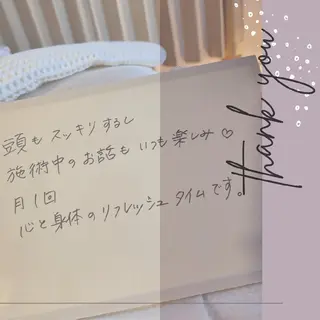 頭もスッキリするし
施術中のお話もいつも楽しみ♡
月1回
心と身体のリフレッシュタイムです。
thank you